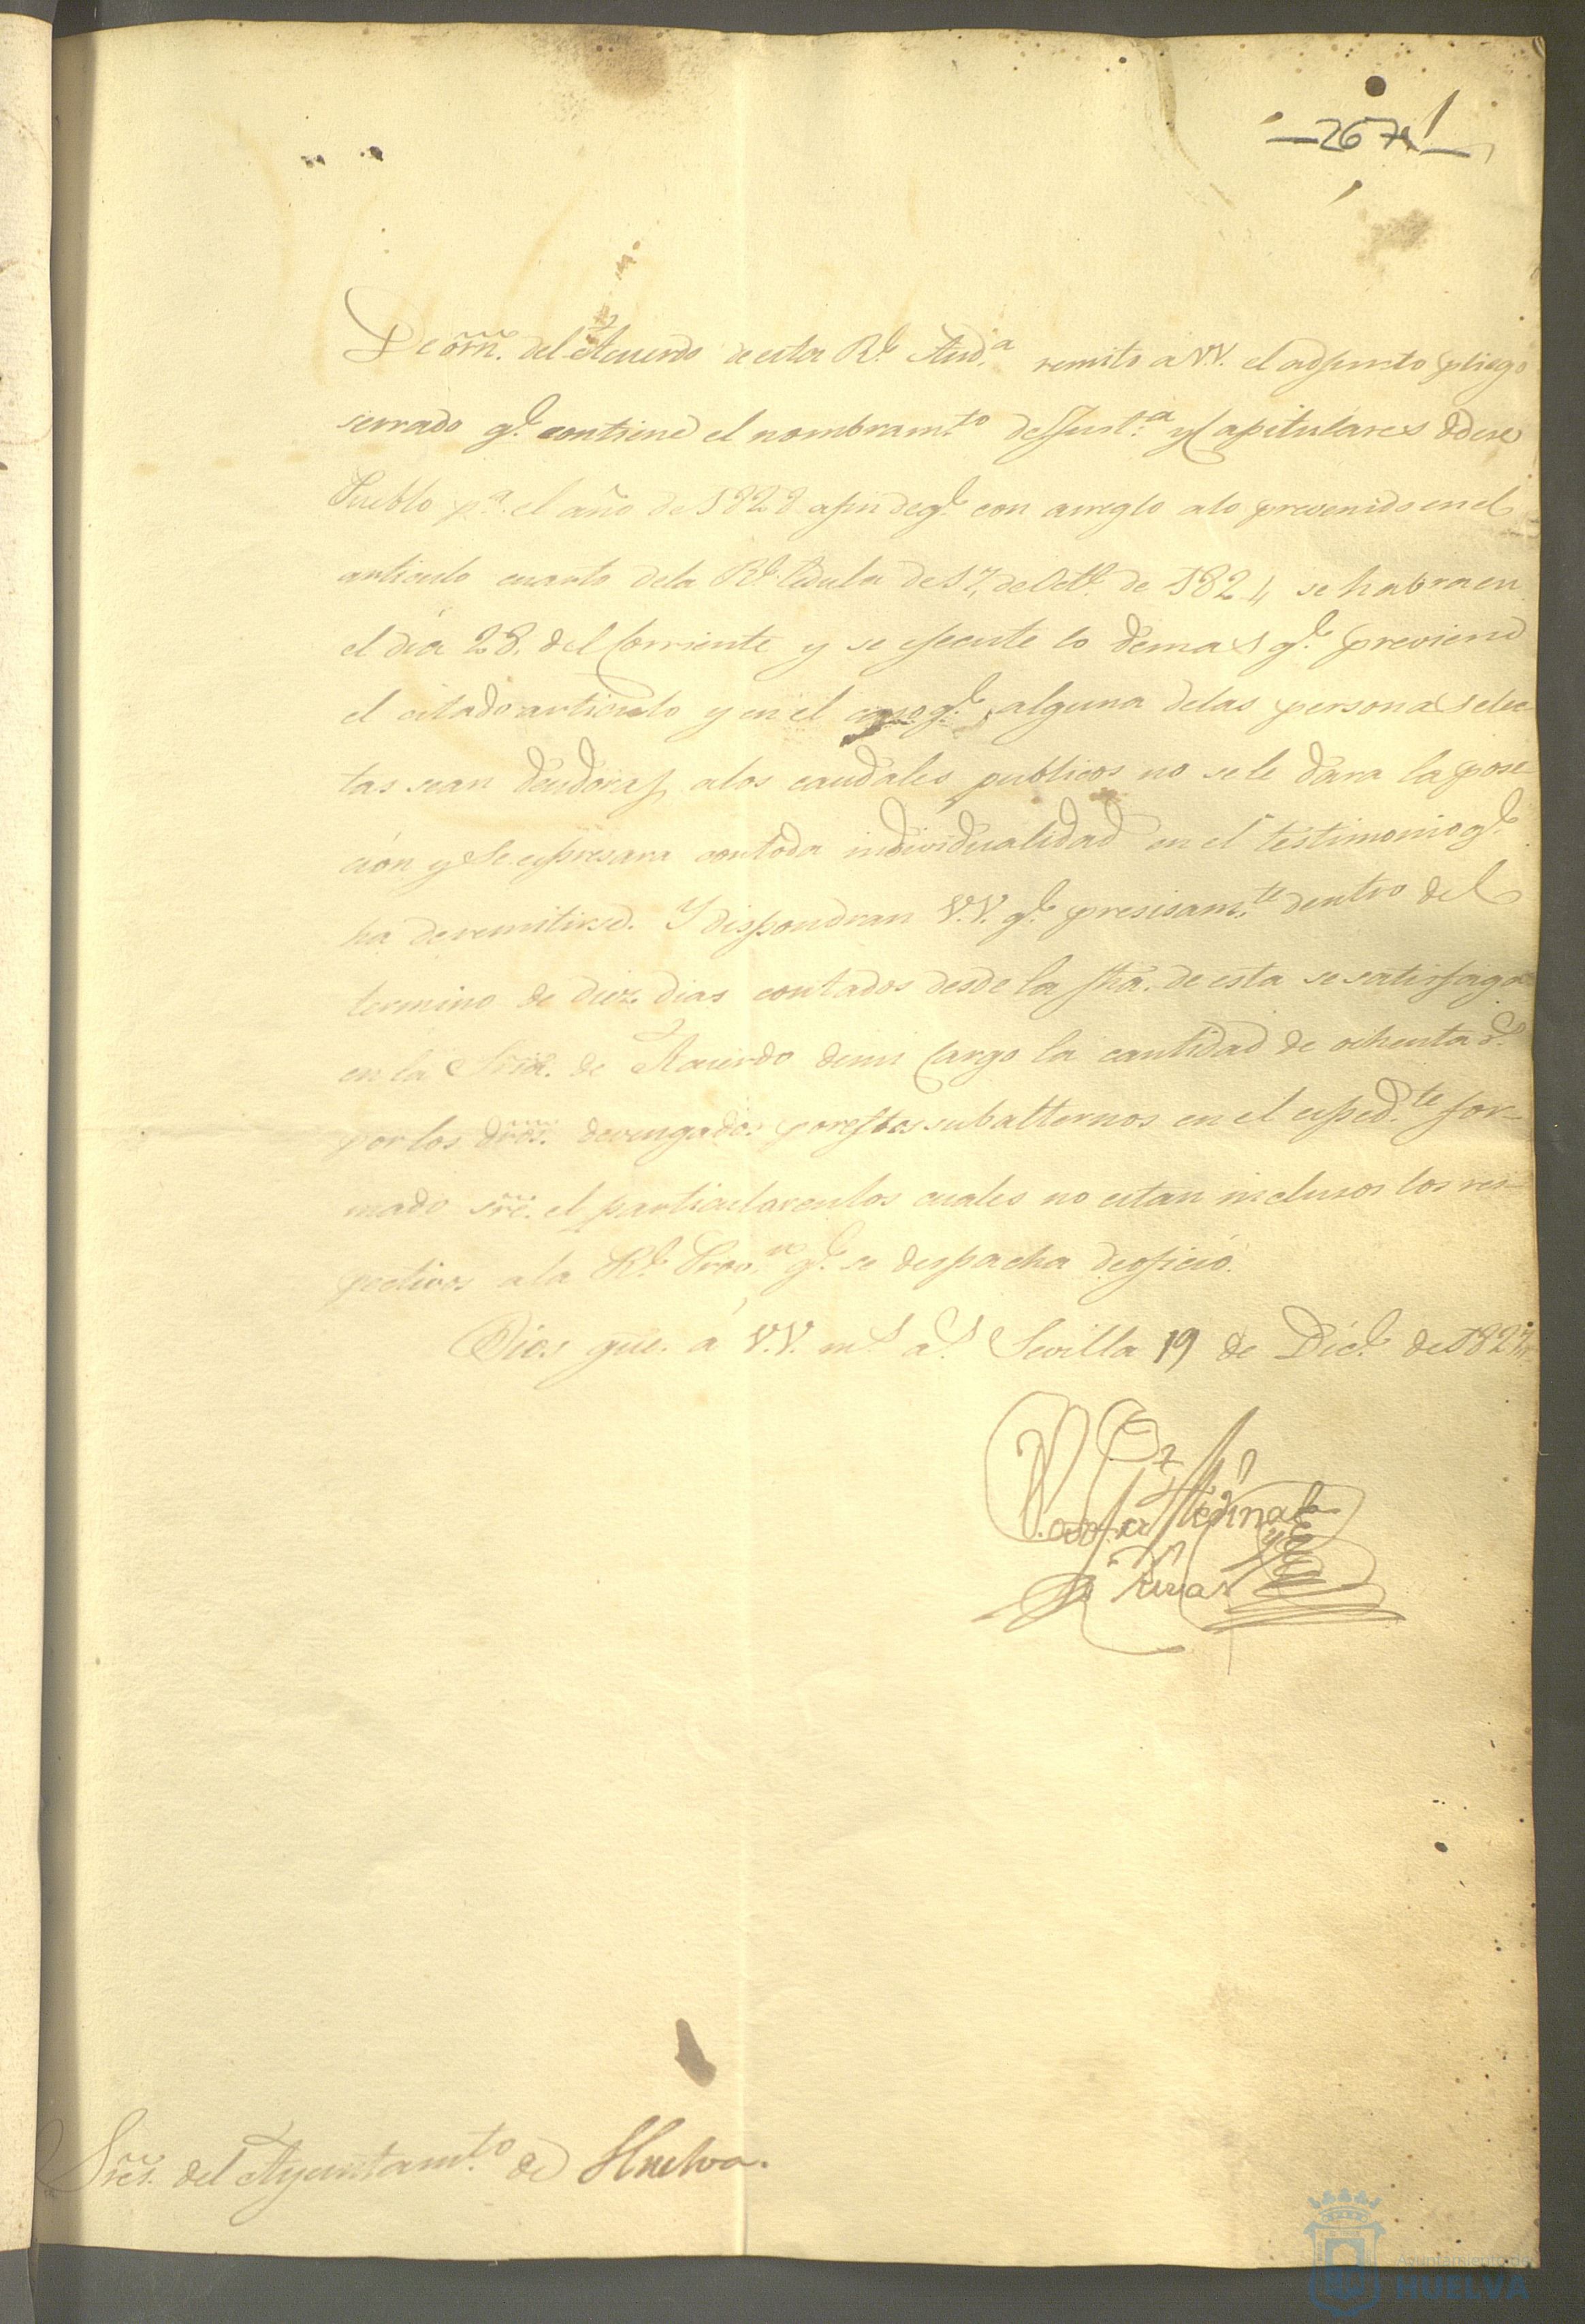 267
De orñ. del Acuerdo de esta Rl. Auda. remito a VV. el adjunto pliego
serrado ql. contiene el nombramto. de Justa. y Capitulares de ese
Pueblo pa. el año de 1828 afin de ql. con arreglo alo prevenido en el
articulo cuarto dela Rl. Cedula de 17, de Octe. de 1824 se habra en
el dia 28, del Corriente y se ejecute lo demas ql. previene
el citado articulo y en el caso ql. alguna delas personas elec-
tas sean deudoras alos caudales publicos no se le dara la pose-
ción y se espresara con toda individualidad en el testimonio ql.
ha de remitirse. Y dispondran V.V. ql. presisamte. dentro del
termino de diez dias contados desde la fha. de esta se satisfaga
en la Sria. de Acuerdo de mi Cargo la cantidad de ochenta rs.
por los dros. devengados por estos subalternos en el espedte. for-
mado sre. el particular en los cuales no estan inclusos los res-
pectivos a la Rl. Provon. ql. se despacha de oficio.
Dios gue. á V.V. ms. as. Sevilla 19 de Dice. de 1827.
Medina
y
Rivas
Sres. del Ayuntamto. de Huelva.
Ayuntamiento de
HUELVA